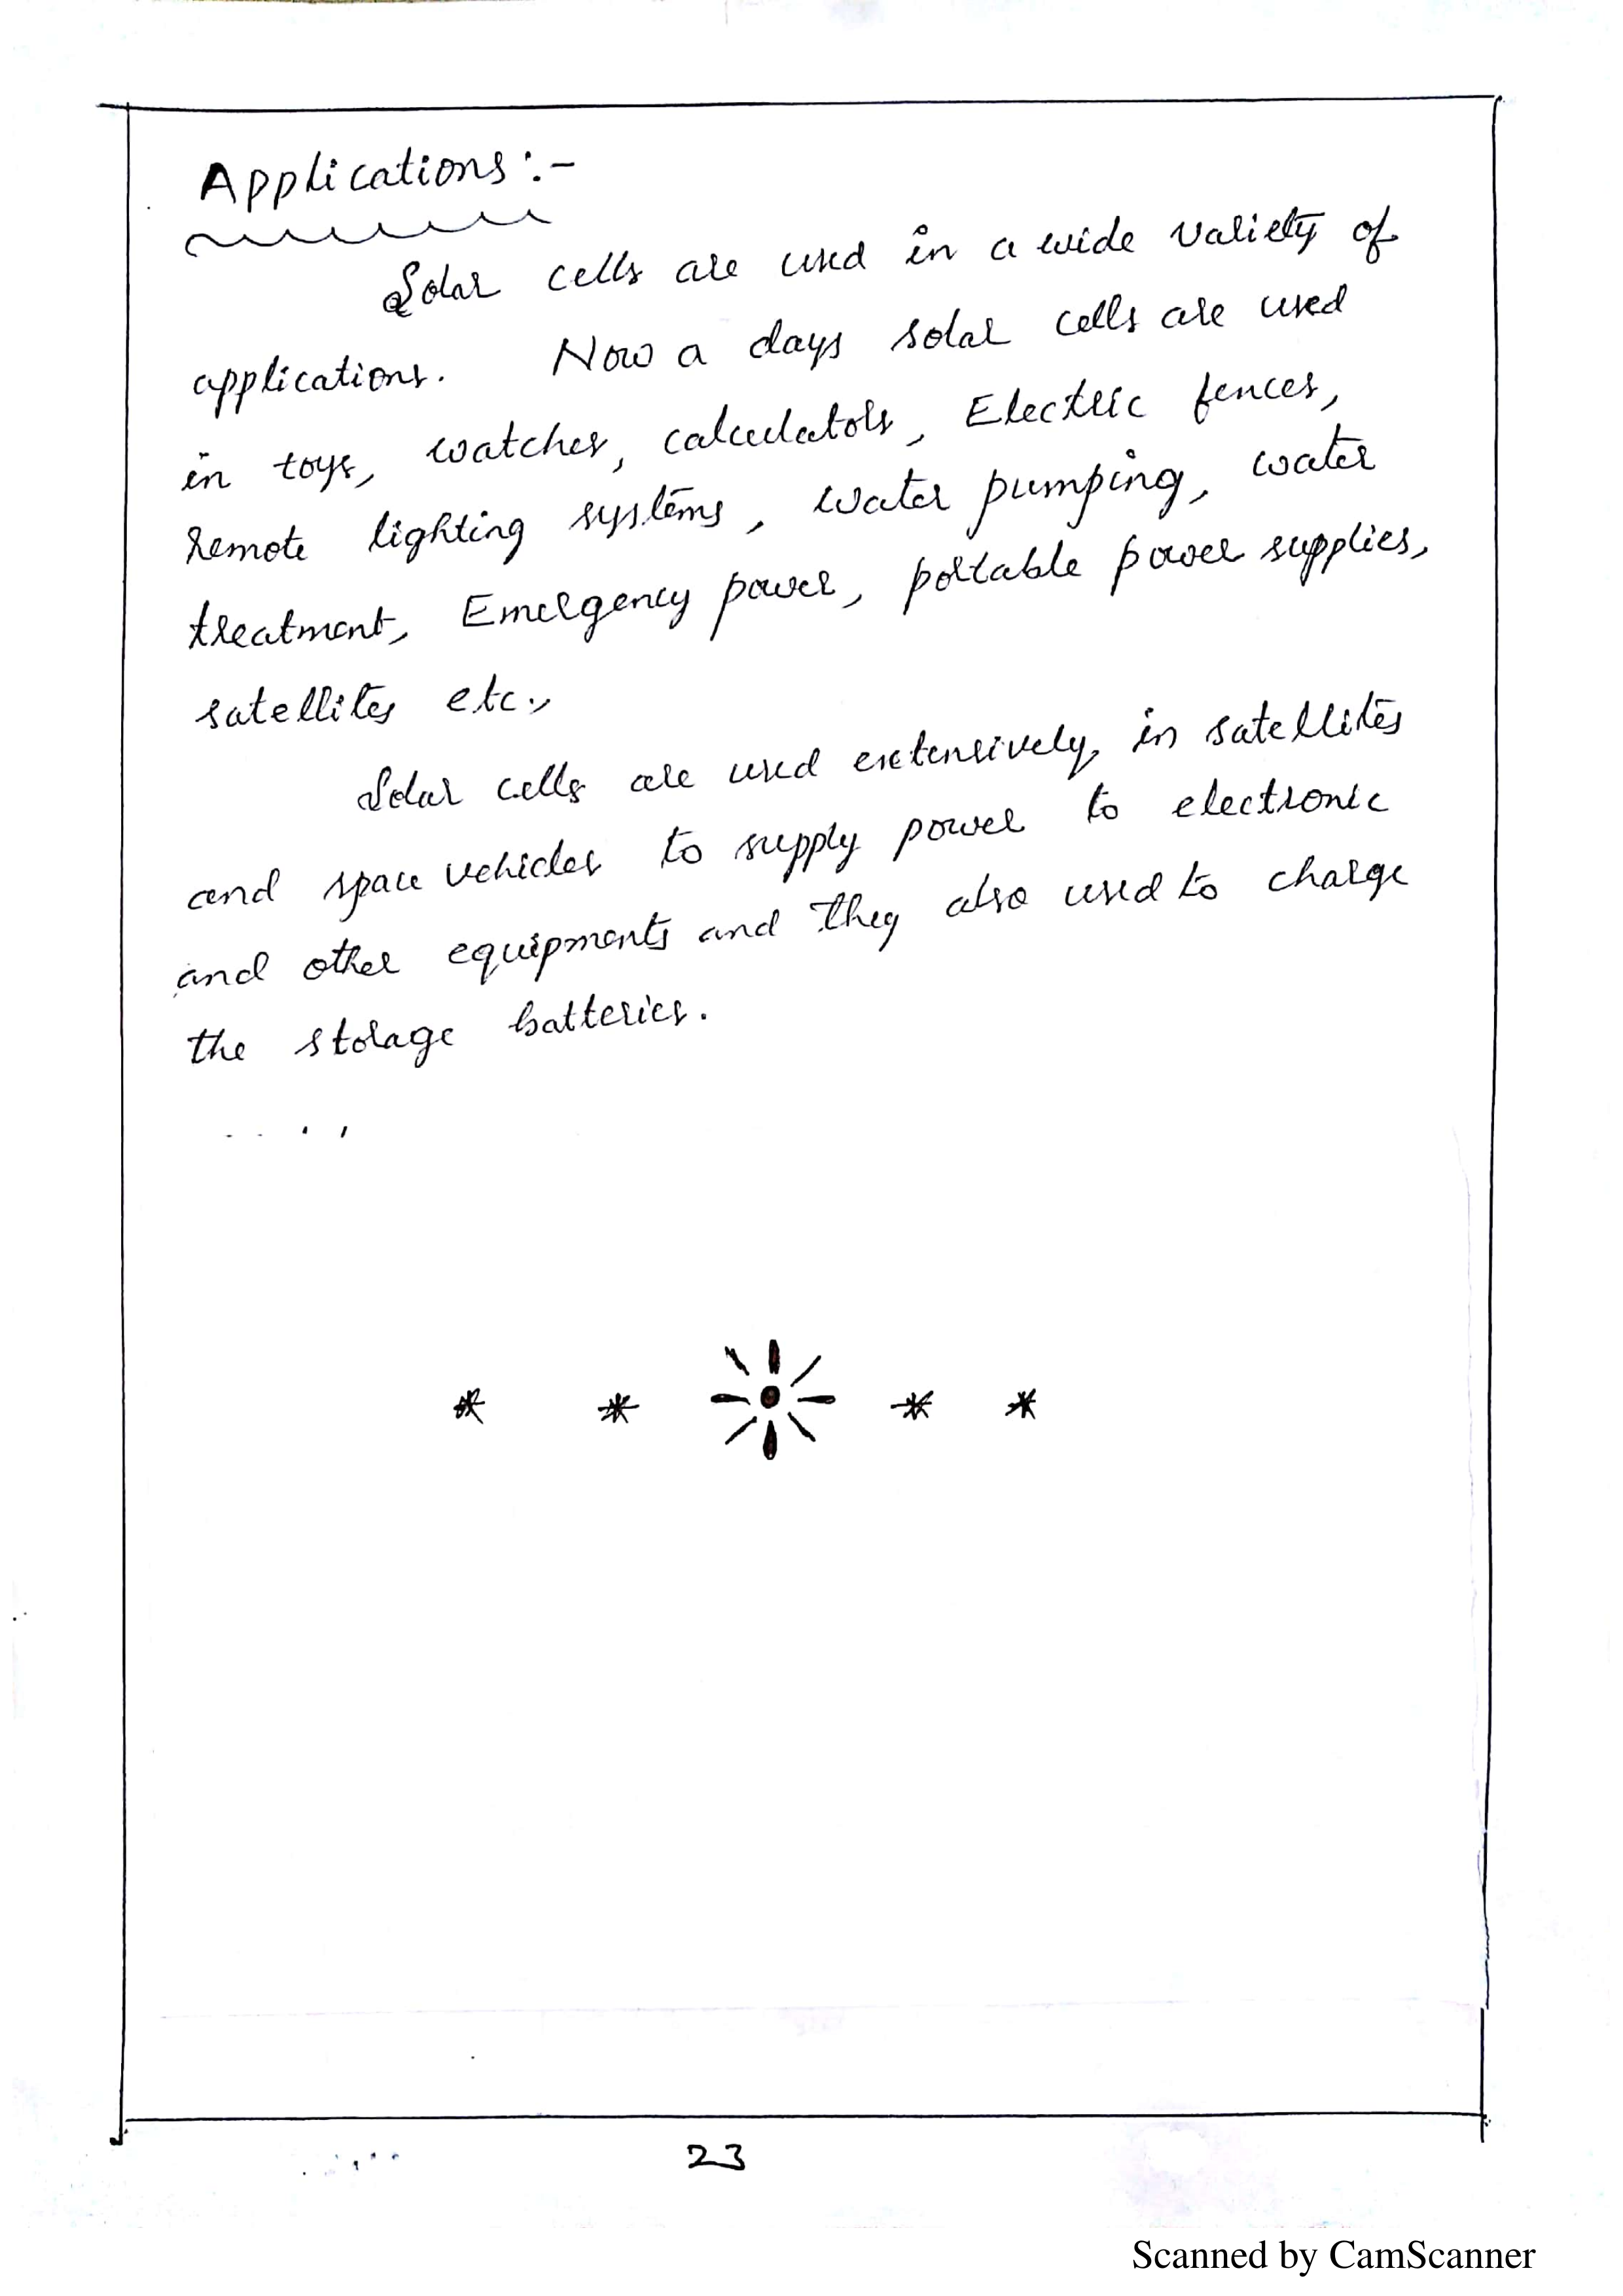 Applications:-
Solar cells are used in a wide variety of
applications. Now a days solar cells are used
in toys, watches, calculators, Electric fences,
Remote lighting systems, water pumping, water
treatment, Emergency power, portable power supplies,
satellites etc.,
Solar cells are used extensively, in satellites
and space vehicles to supply power to electronic
and other equipments and they also used to charge
the storage batteries.
23
Scanned by CamScanner